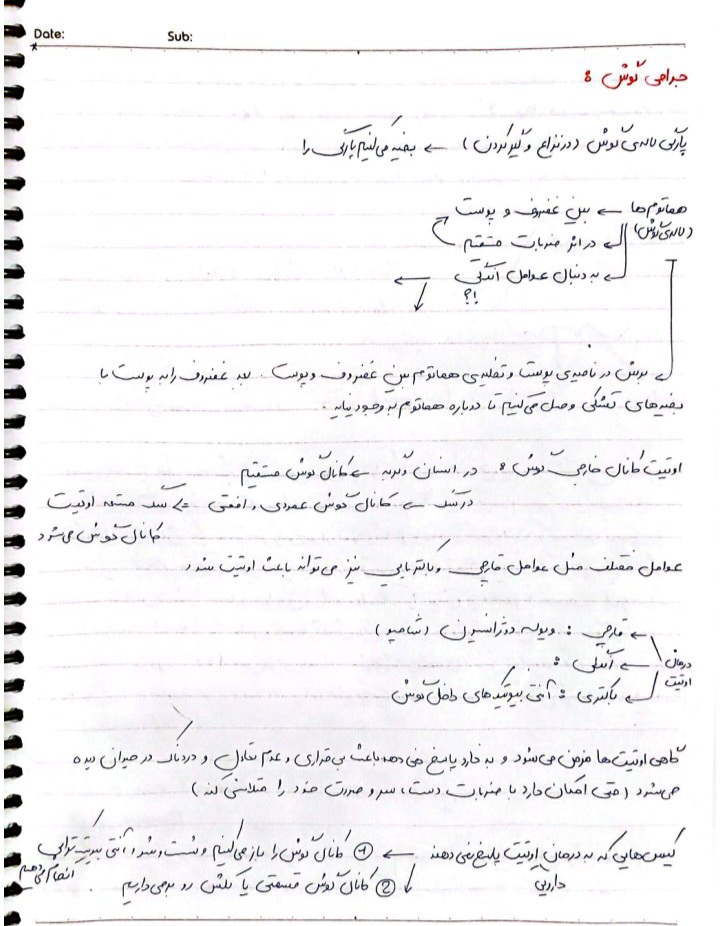 Date: Sub:
جراحی گوش :
پارگی لاله‌ی گوش (در نزاع و گیر کردن) ← بخیه می‌کنیم پارگی را
هماتوم‌ها ← بین غضروف و پوست
(لاله‌ی گوش)
← در اثر ضربات مستقیم
← به دنبال عوامل انگلی ←
؟!
← برش در ناحیه‌ی پوست و تخلیه‌ی هماتوم بین غضروف و پوست. بعد غضروف را به پوست با
بخیه‌های تشکی وصل می‌کنیم تا دوباره هماتوم به وجود نیاید.
اوتیت کانال خارجی گوش : در انسان و گربه ← کانال گوش مستقیم
در سگ ← کانال گوش عمودی و افقی ⇐ سگ مستعد اوتیت
کانال گوش می‌شود
عوامل مختلف مثل عوامل قارچی و باکتریایی نیز می‌تواند باعث اوتیت شود
درمان اوتیت
← قارچی : (شامپو)
← انگلی :
← باکتری : آنتی بیوتیک‌های داخل گوش
گاهی اوتیت‌ها مزمن می‌شود و به دارو پاسخ نمی‌دهد باعث بی‌قراری و عدم تعادل و دردناک در حیوان دیده
می‌شود (حتی امکان دارد با ضربات دست، سر و صورت خود را متلاشی کند)
کیس‌هایی که به درمان دارویی اوتیت پاسخ نمی‌دهند ← ① کانال گوش را باز می‌کنیم و شست و شو و آنتی بیوتیک تراپی انجام می‌دهیم
② کانال گوش قسمتی یا کلش رو برمی‌داریم